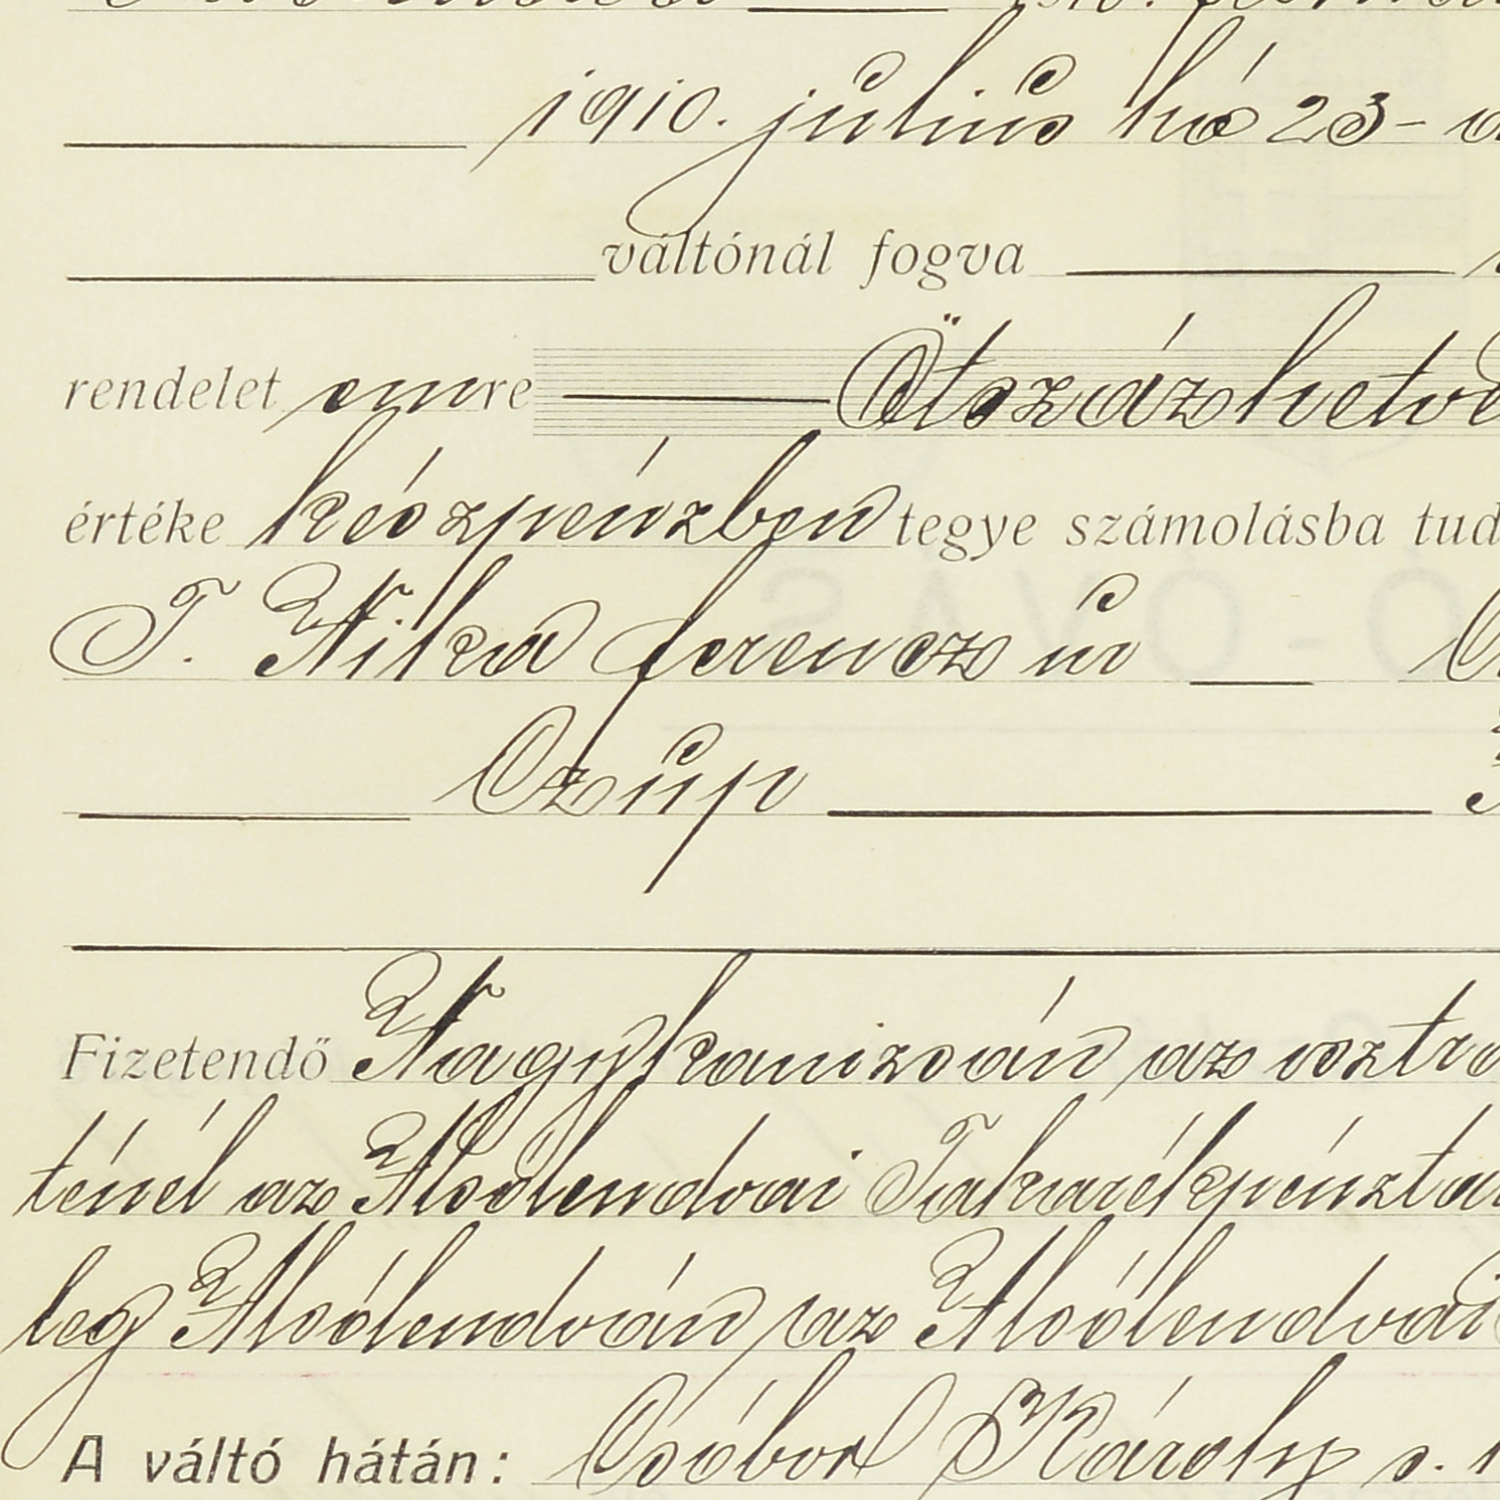 1910. július hó 23-
váltónál fogva
rendelet emre Ötszázhetve
értéke készpénzben tegye számolásba tud
T. Nika ferencz úr
Czúp
Fizetendő Nagykanizsán az osztrá
ténél az Alsólendvai Takarékpénztár
leg Alsólendván, az Alsólendvai
A váltó hátán: Csóbor Károly s.